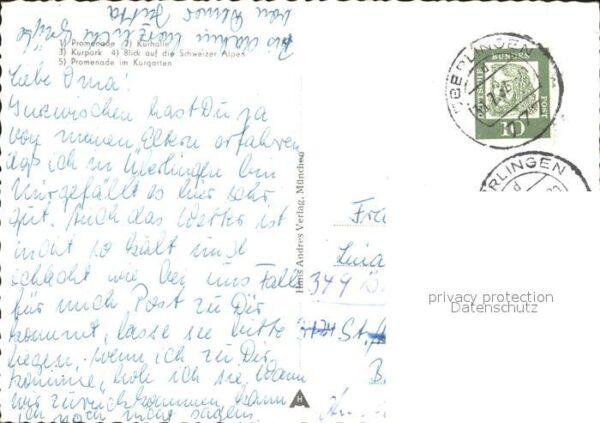 Bis dahin herzliche Grüße
von Deiner Jutta
1) Promenade 2) Kurhalle
3) Kurpark 4) Blick auf die Schweizer Alpen
5) Promenade im Kurgarten
Liebe Oma!
Inzwischen hast Du ja
von meinen Eltern erfahren
daß ich in Überlingen bin
Mir gefällt es hier sehr
gut. Auch das Wetter ist
nicht so kalt und
schlecht wie bei uns. Falls
für mich Post zu Dir
kommt, lasse sie bitte
liegen. Wenn ich zu Dir
komme, hole ich sie. Wann
wir zurückkommen, kann
ich noch nicht sagen.
Hans Andres Verlag, München
H
ÜBERLINGEN
DEUTSCHE BUNDESPOST
10
ÜBERLINGEN
Lina
349
St.
privacy protection
Datenschutz